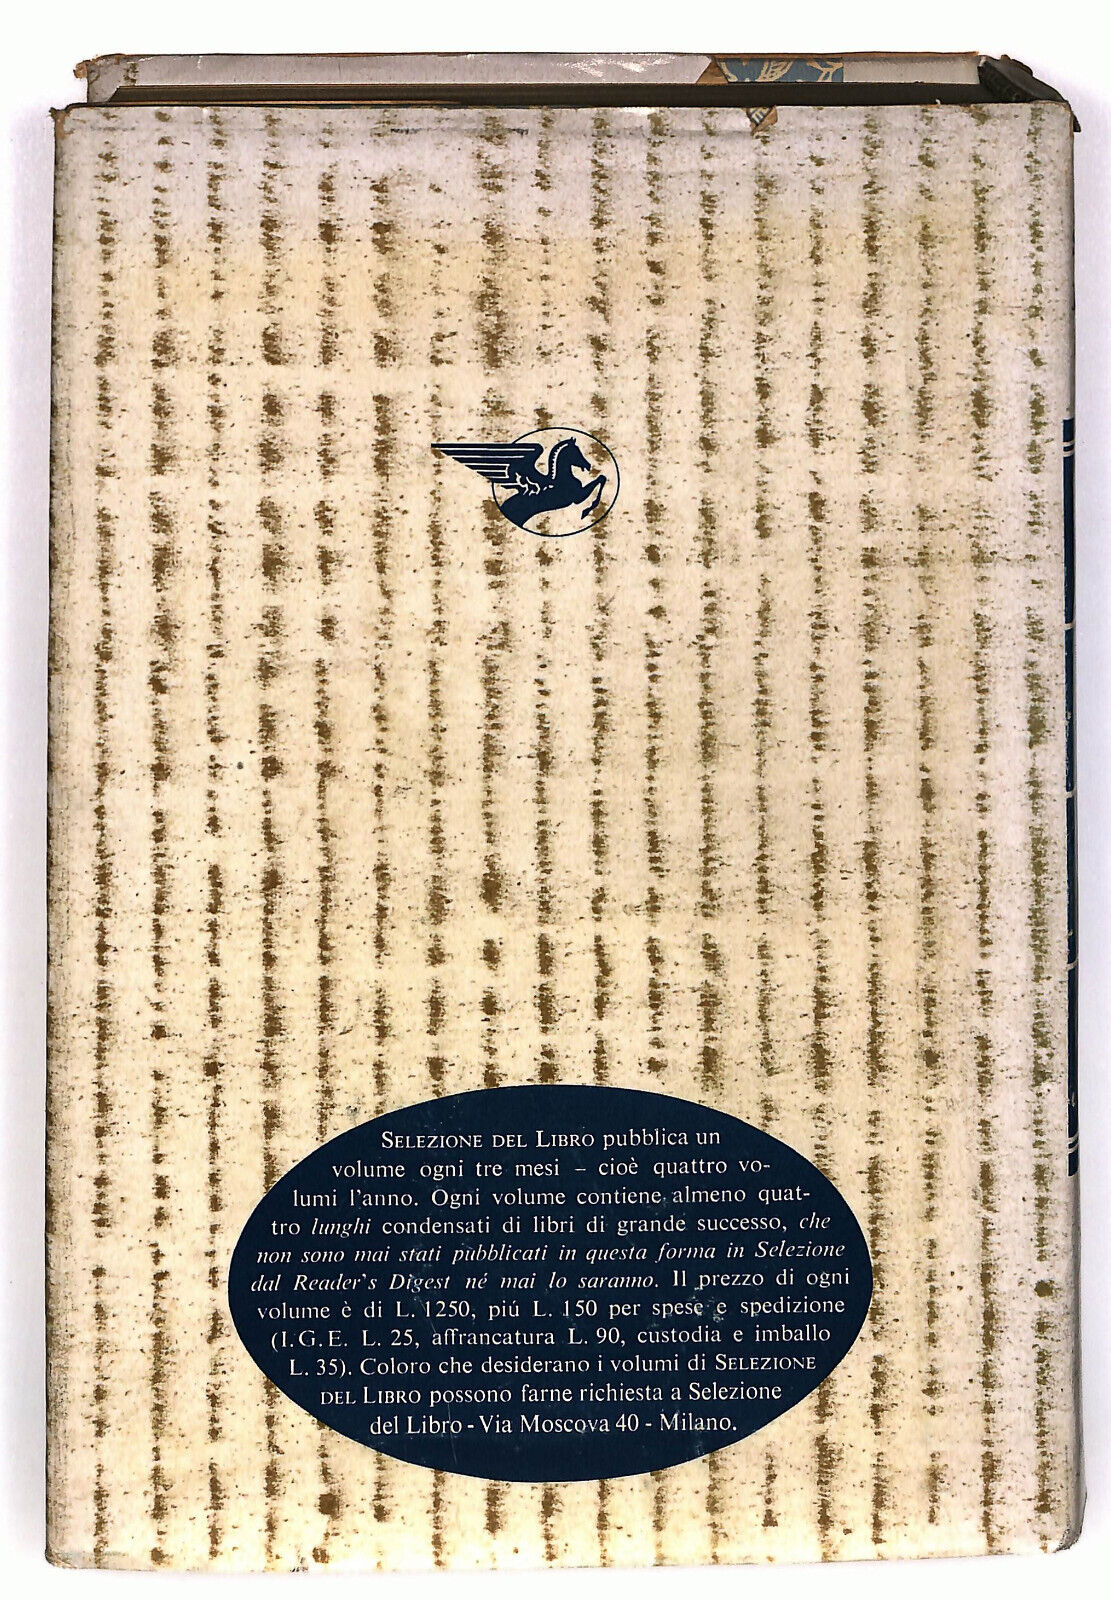 SELEZIONE DEL LIBRO pubblica un
volume ogni tre mesi – cioè quattro vo-
lumi l'anno. Ogni volume contiene almeno quat-
tro lunghi condensati di libri di grande successo, che
non sono mai stati pubblicati in questa forma in Selezione
dal Reader's Digest né mai lo saranno. Il prezzo di ogni
volume è di L. 1250, piú L. 150 per spese e spedizione
(I.G.E. L. 25, affrancatura L. 90, custodia e imballo
L. 35). Coloro che desiderano i volumi di SELEZIONE
DEL LIBRO possono farne richiesta a Selezione
del Libro - Via Moscova 40 - Milano.